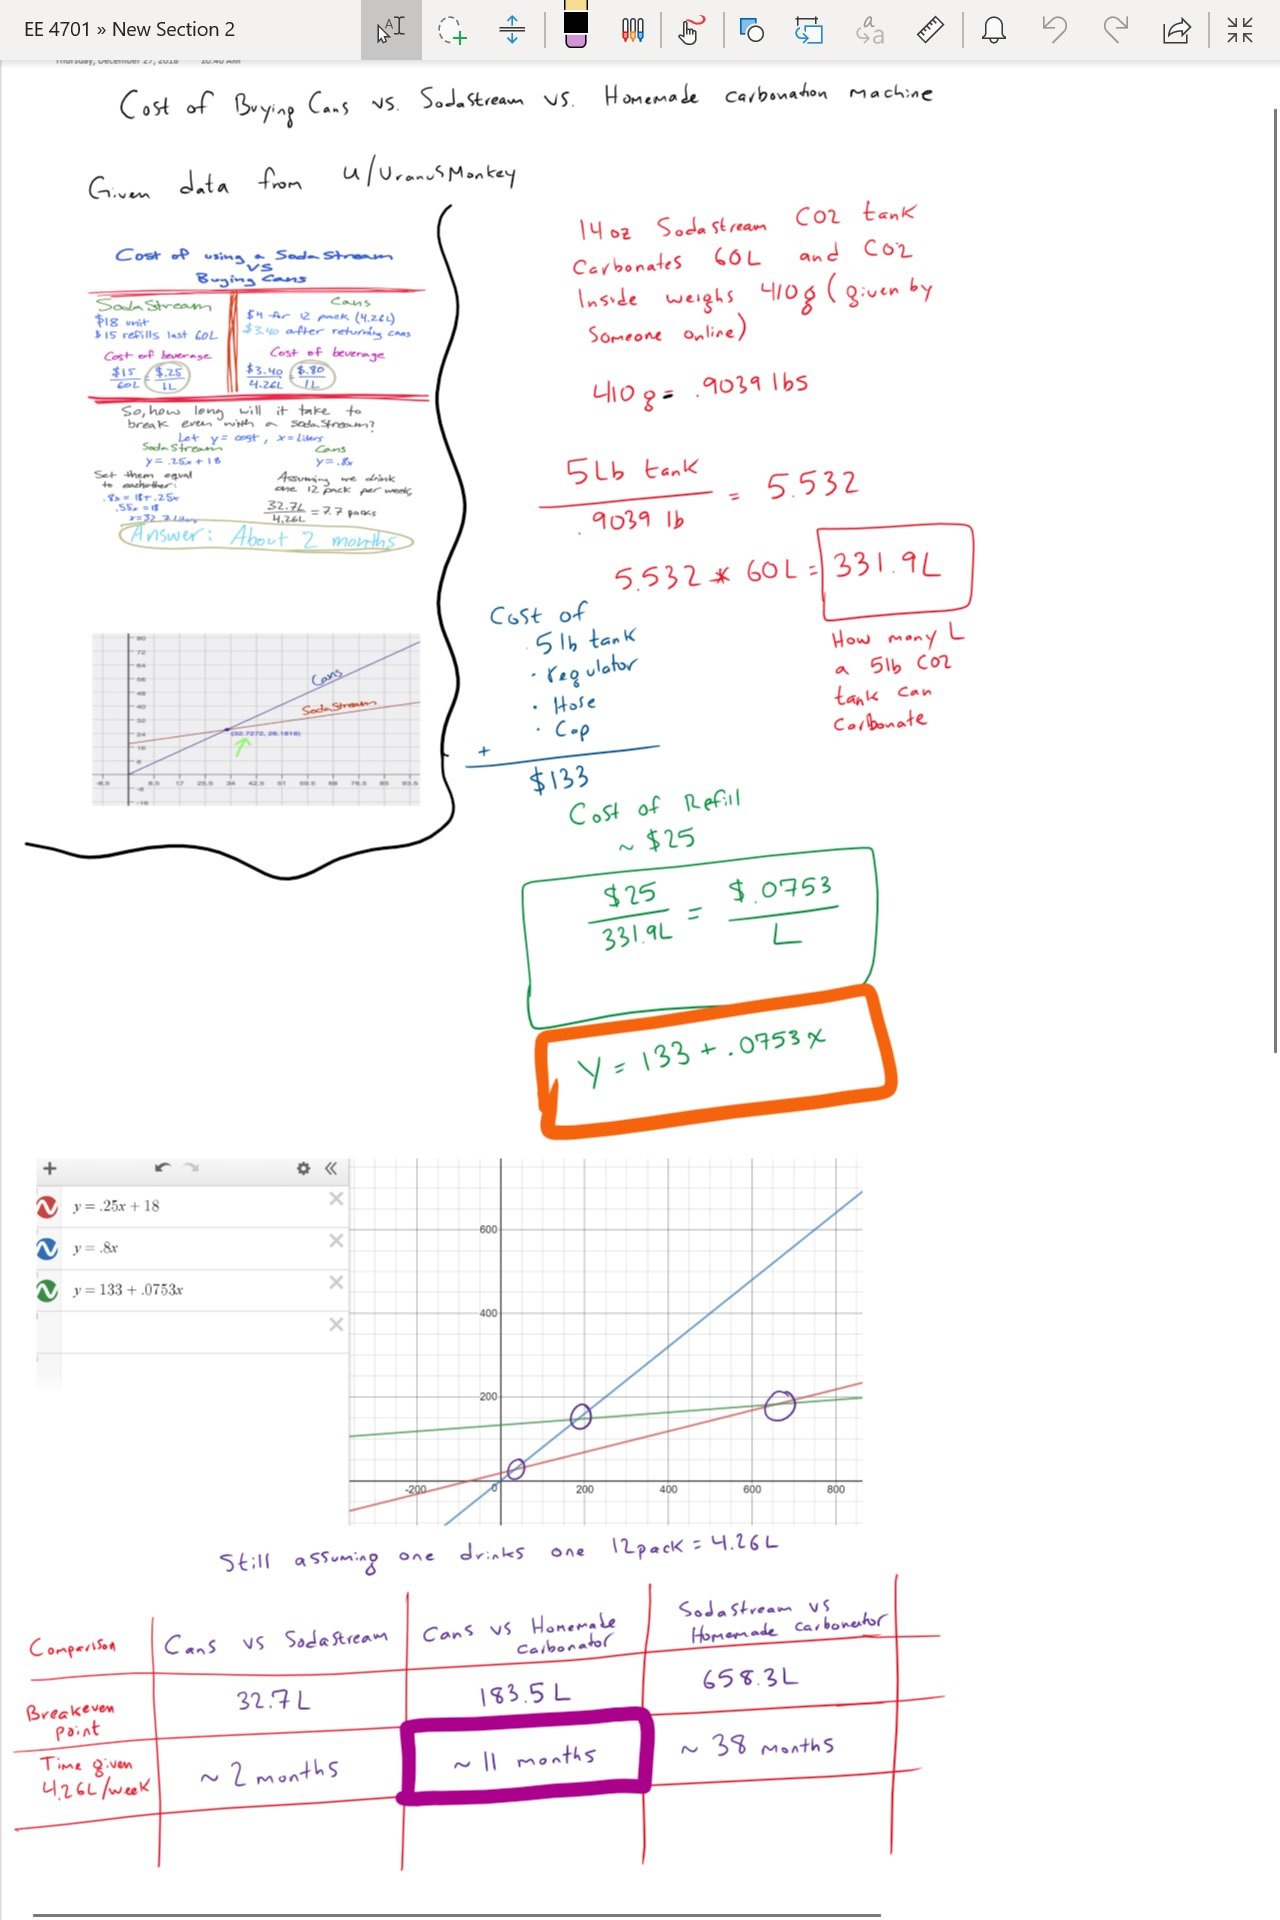 EE 4701 » New Section 2
Thursday, December 27, 2018 10:40 AM
Cost of Buying Cans vs. Sodastream vs. Homemade carbonation machine
Given data from u/UranusMonkey
Cost of using a SodaStream
VS
Buying Cans
SodaStream
$18 unit
$15 refills last 60L
Cost of beverage
$15/60L $.25/1L
Cans
$4 for 12 pack (4.26L)
$3.40 after returning cans
Cost of beverage
$3.40/4.26L $.80/1L
So, how long will it take to
break even with a sodaStream?
Let y = cost, x = liters
SodaStream
y = .25x + 18
Cans
y = .8x
Set them equal
to eachother:
.8x = 18 + .25x
.55x = 18
x = 32.7 Liters
Assuming we drink
one 12 pack per week,
32.7L/4.26L = 7.7 packs
Answer: About 2 months
80
72
64
56
48
40
32
24
16
8
-8
-16
-8.5 8.5 17 25.5 34 42.5 51 59.5 68 76.5 85 93.5
Cans
SodaStream
(32.7272, 26.1818)
14oz Sodastream CO2 tank
Carbonates 60L and CO2
Inside weighs 410g (given by
Someone online)
410g = .9039 lbs
5Lb tank / .9039 lb = 5.532
5.532 * 60L = 331.9L
How many L
a 5lb CO2
tank can
Carbonate
Cost of
· 5lb tank
· regulator
· Hose
· Cap
+
$133
Cost of Refill
~ $25
$25/331.9L = $.0753/L
Y = 133 + .0753x
y = .25x + 18
y = .8x
y = 133 + .0753x
600
400
200
-200 0 200 400 600 800
Still assuming one drinks one 12pack = 4.26L
Comparison
Cans vs Sodastream
Cans vs Homemade
carbonator
Sodastream vs
Homemade carbonator
Breakeven
point
32.7L
183.5L
658.3L
Time given
4.26L/week
~ 2 months
~ 11 months
~ 38 months